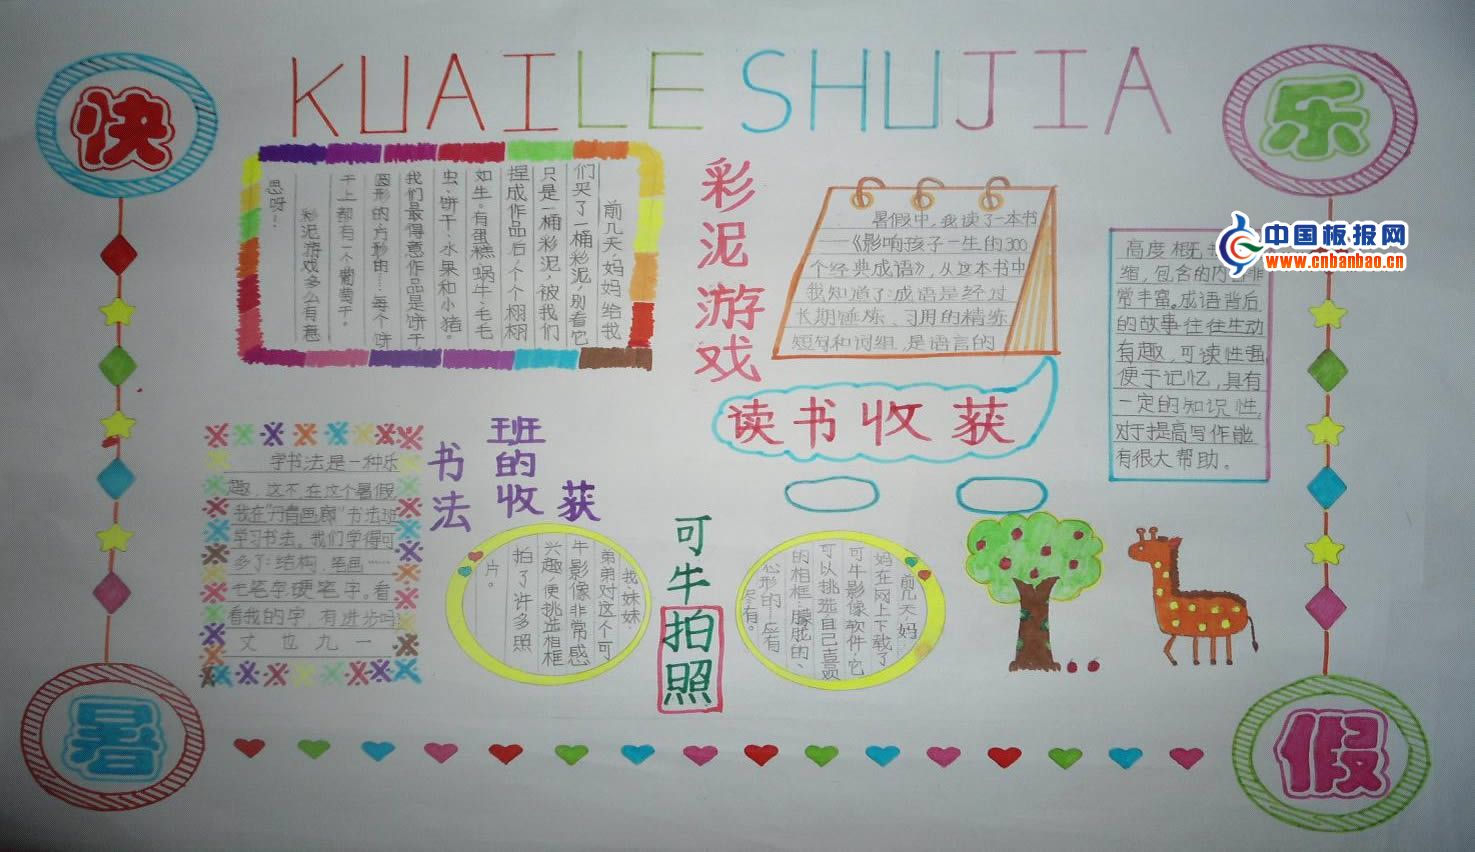 快
KUAILE SHUJIA
乐
前几天,妈妈给我
们买了一桶彩泥,别看它
只是一桶彩泥,被我们
捏成作品后,个个栩栩
如生。有蛋糕、蜗牛、毛毛
虫、饼干、水果和小猪。
我们最得意作品是饼干
圆形的、方形的……每个饼
干上都有一个葡萄干。
彩泥游戏多么有意
思呀…
彩泥游戏
暑假中,我读了一本书
——《影响孩子一生的300
个经典成语》,从这本书中
我知道了:成语是经过
长期锤炼、习用的精练
短句和词组,是语言的
高度概
缩,包含的内容非
常丰富。成语背后
的故事往往生动
有趣,可读性强,
便于记忆,具有
一定的知识性,
对于提高写作能
有很大帮助。
中国板报网
www.cnbanbao.cn
读书收获
书法
班的收获
学书法是一种乐
趣,这不,在这个暑假,
我在“丹青画廊”书法班
学习书法。我们学得可
多了:结构、笔画……
毛笔字、硬笔字。看
看我的字,有进步吗?
丈也九一
我妹妹
弟弟对这个可
牛影像非常感
兴趣,便挑选相框
拍了许多照
片。
可牛拍照
前几天,妈
妈在网上下载了
可牛影像软件,它
可以挑选自己喜欢
的相框,朦胧的、
心形的……应有
尽有。
暑
假